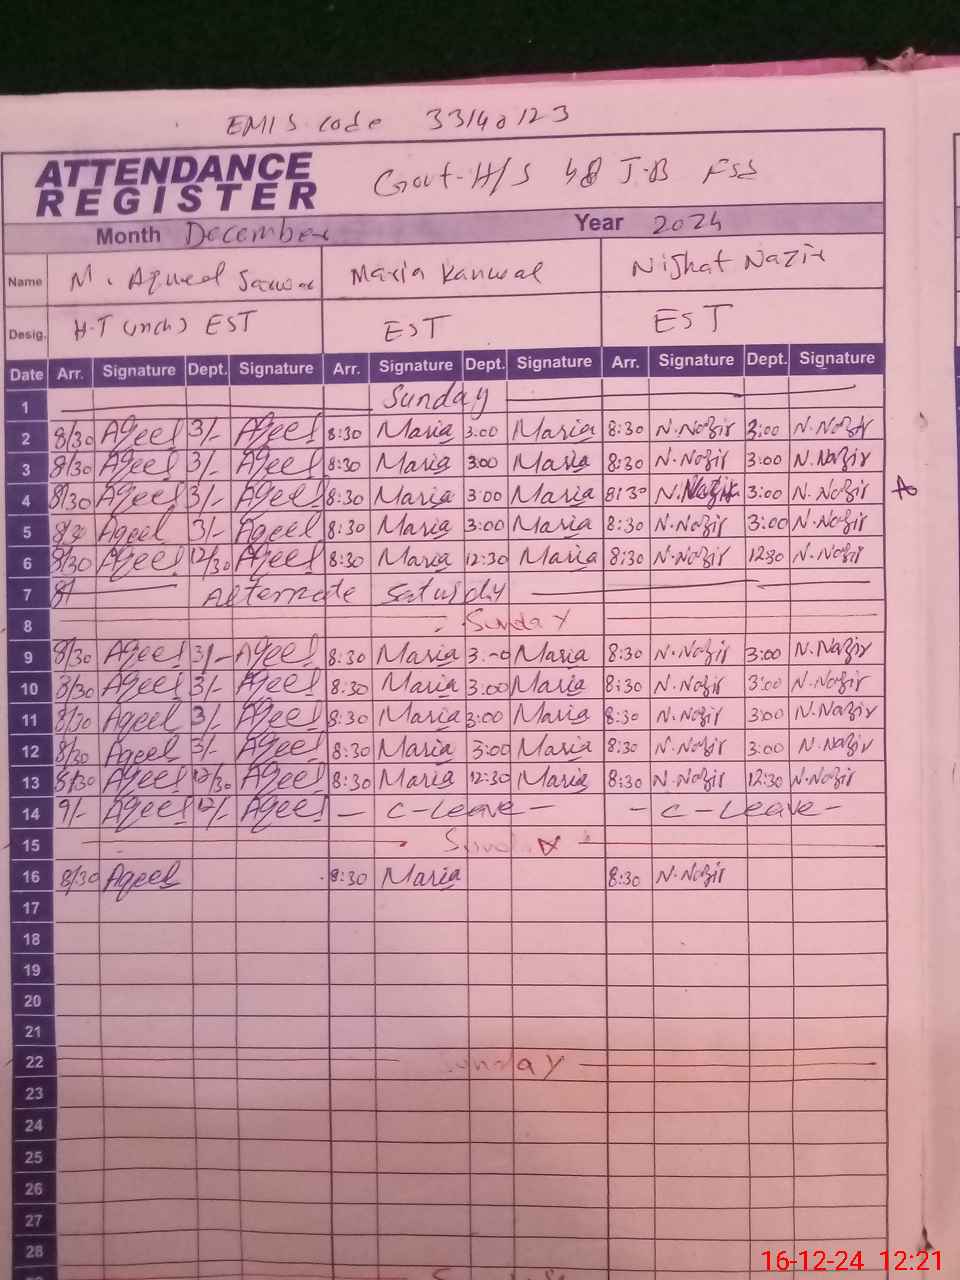 EMIS code 33140123
ATTENDANCE REGISTER Govt-H/S 48 J-B FSD
Month December Year 2024
Name M. Aqeel Sarwar Maria Kanwal Nishat Nazir
Desig. H-T (Inch) EST EST EST
Date Arr. Signature Dept. Signature Arr. Signature Dept. Signature Arr. Signature Dept. Signature
1 Sunday
2 8/30 Aqeel 3/- Aqeel 8:30 Maria 3:00 Maria 8:30 N.Nazir 3:00 N.Nazir
3 8/30 Aqeel 3/- Aqeel 8:30 Maria 3:00 Maria 8:30 N.Nazir 3:00 N.Nazir
4 8/30 Aqeel 3/- Aqeel 8:30 Maria 3:00 Maria 8:30 N.Nazir 3:00 N.Nazir
5 8/30 Aqeel 3/- Aqeel 8:30 Maria 3:00 Maria 8:30 N.Nazir 3:00 N.Nazir
6 8/30 Aqeel 12/30 Aqeel 8:30 Maria 12:30 Maria 8:30 N.Nazir 12:30 N.Nazir
7 8/ Alternate Saturday
8 Sunday
9 8/30 Aqeel 3/- Aqeel 8:30 Maria 3:00 Maria 8:30 N.Nazir 3:00 N.Nazir
10 8/30 Aqeel 3/- Aqeel 8:30 Maria 3:00 Maria 8:30 N.Nazir 3:00 N.Nazir
11 8/30 Aqeel 3/- Aqeel 8:30 Maria 3:00 Maria 8:30 N.Nazir 3:00 N.Nazir
12 8/30 Aqeel 3/- Aqeel 8:30 Maria 3:00 Maria 8:30 N.Nazir 3:00 N.Nazir
13 8/30 Aqeel 12/30 Aqeel 8:30 Maria 12:30 Maria 8:30 N.Nazir 12:30 N.Nazir
14 9/- Aqeel 12/- Aqeel - C-Leave - - C-Leave -
15 Sunday
16 8/30 Aqeel 8:30 Maria 8:30 N.Nazir
17
18
19
20
21
22 Sunday
23
24
25
26
27
28
16-12-24 12:21